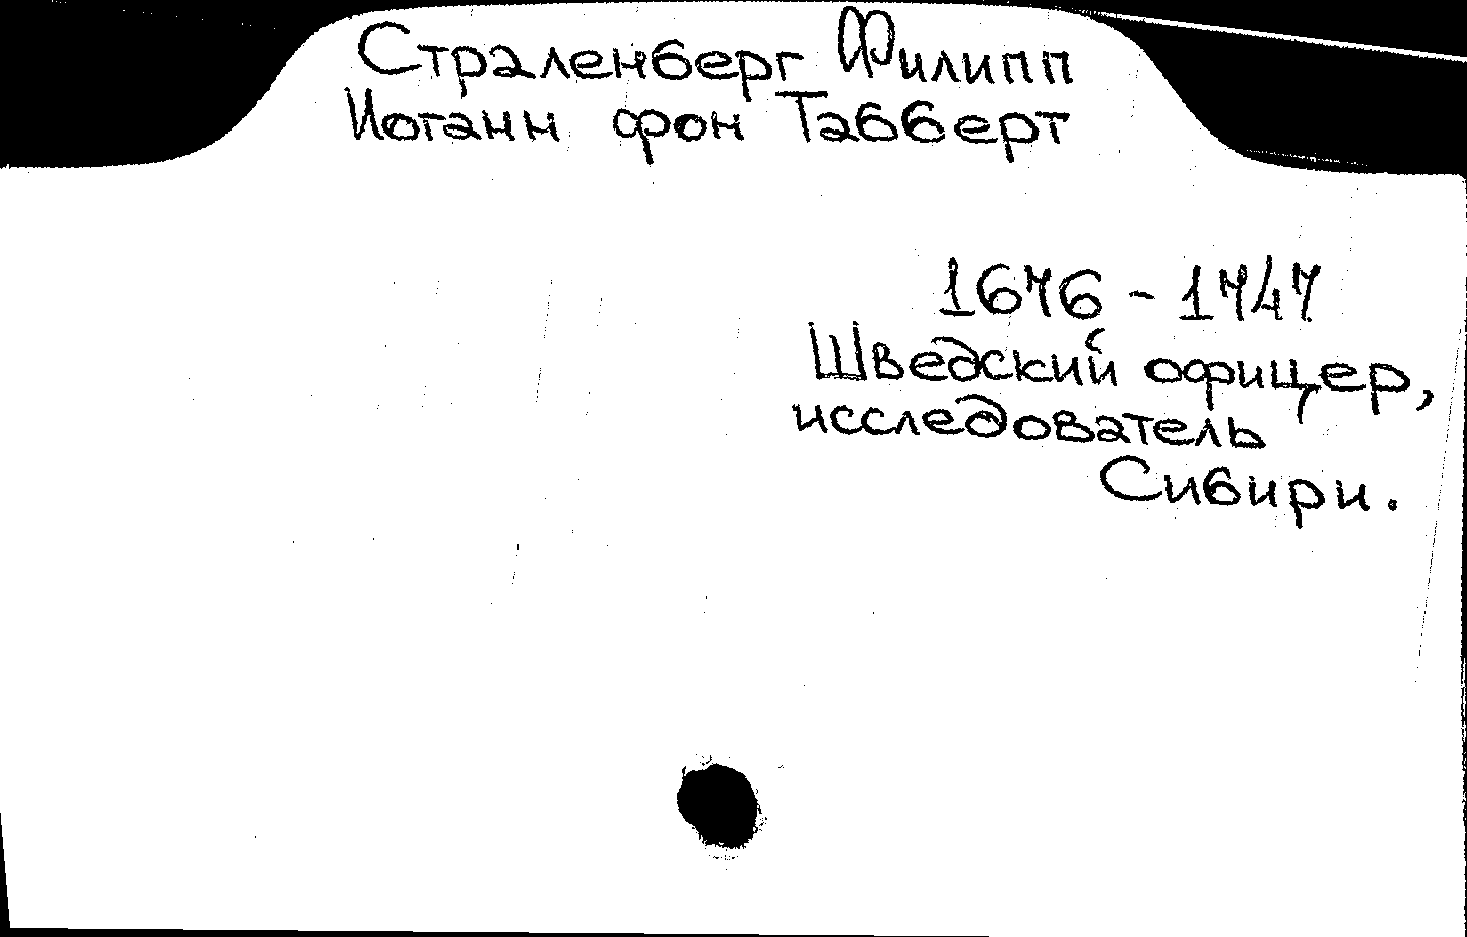 Страленберг Филипп
Иоганн фон Табберт
1676 - 1747
Шведский офицер,
исследователь
Сибири.